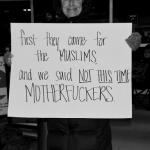 first they came for
the MUSLIMS
and we said NOT THIS TIME
MOTHERFUCKERS.